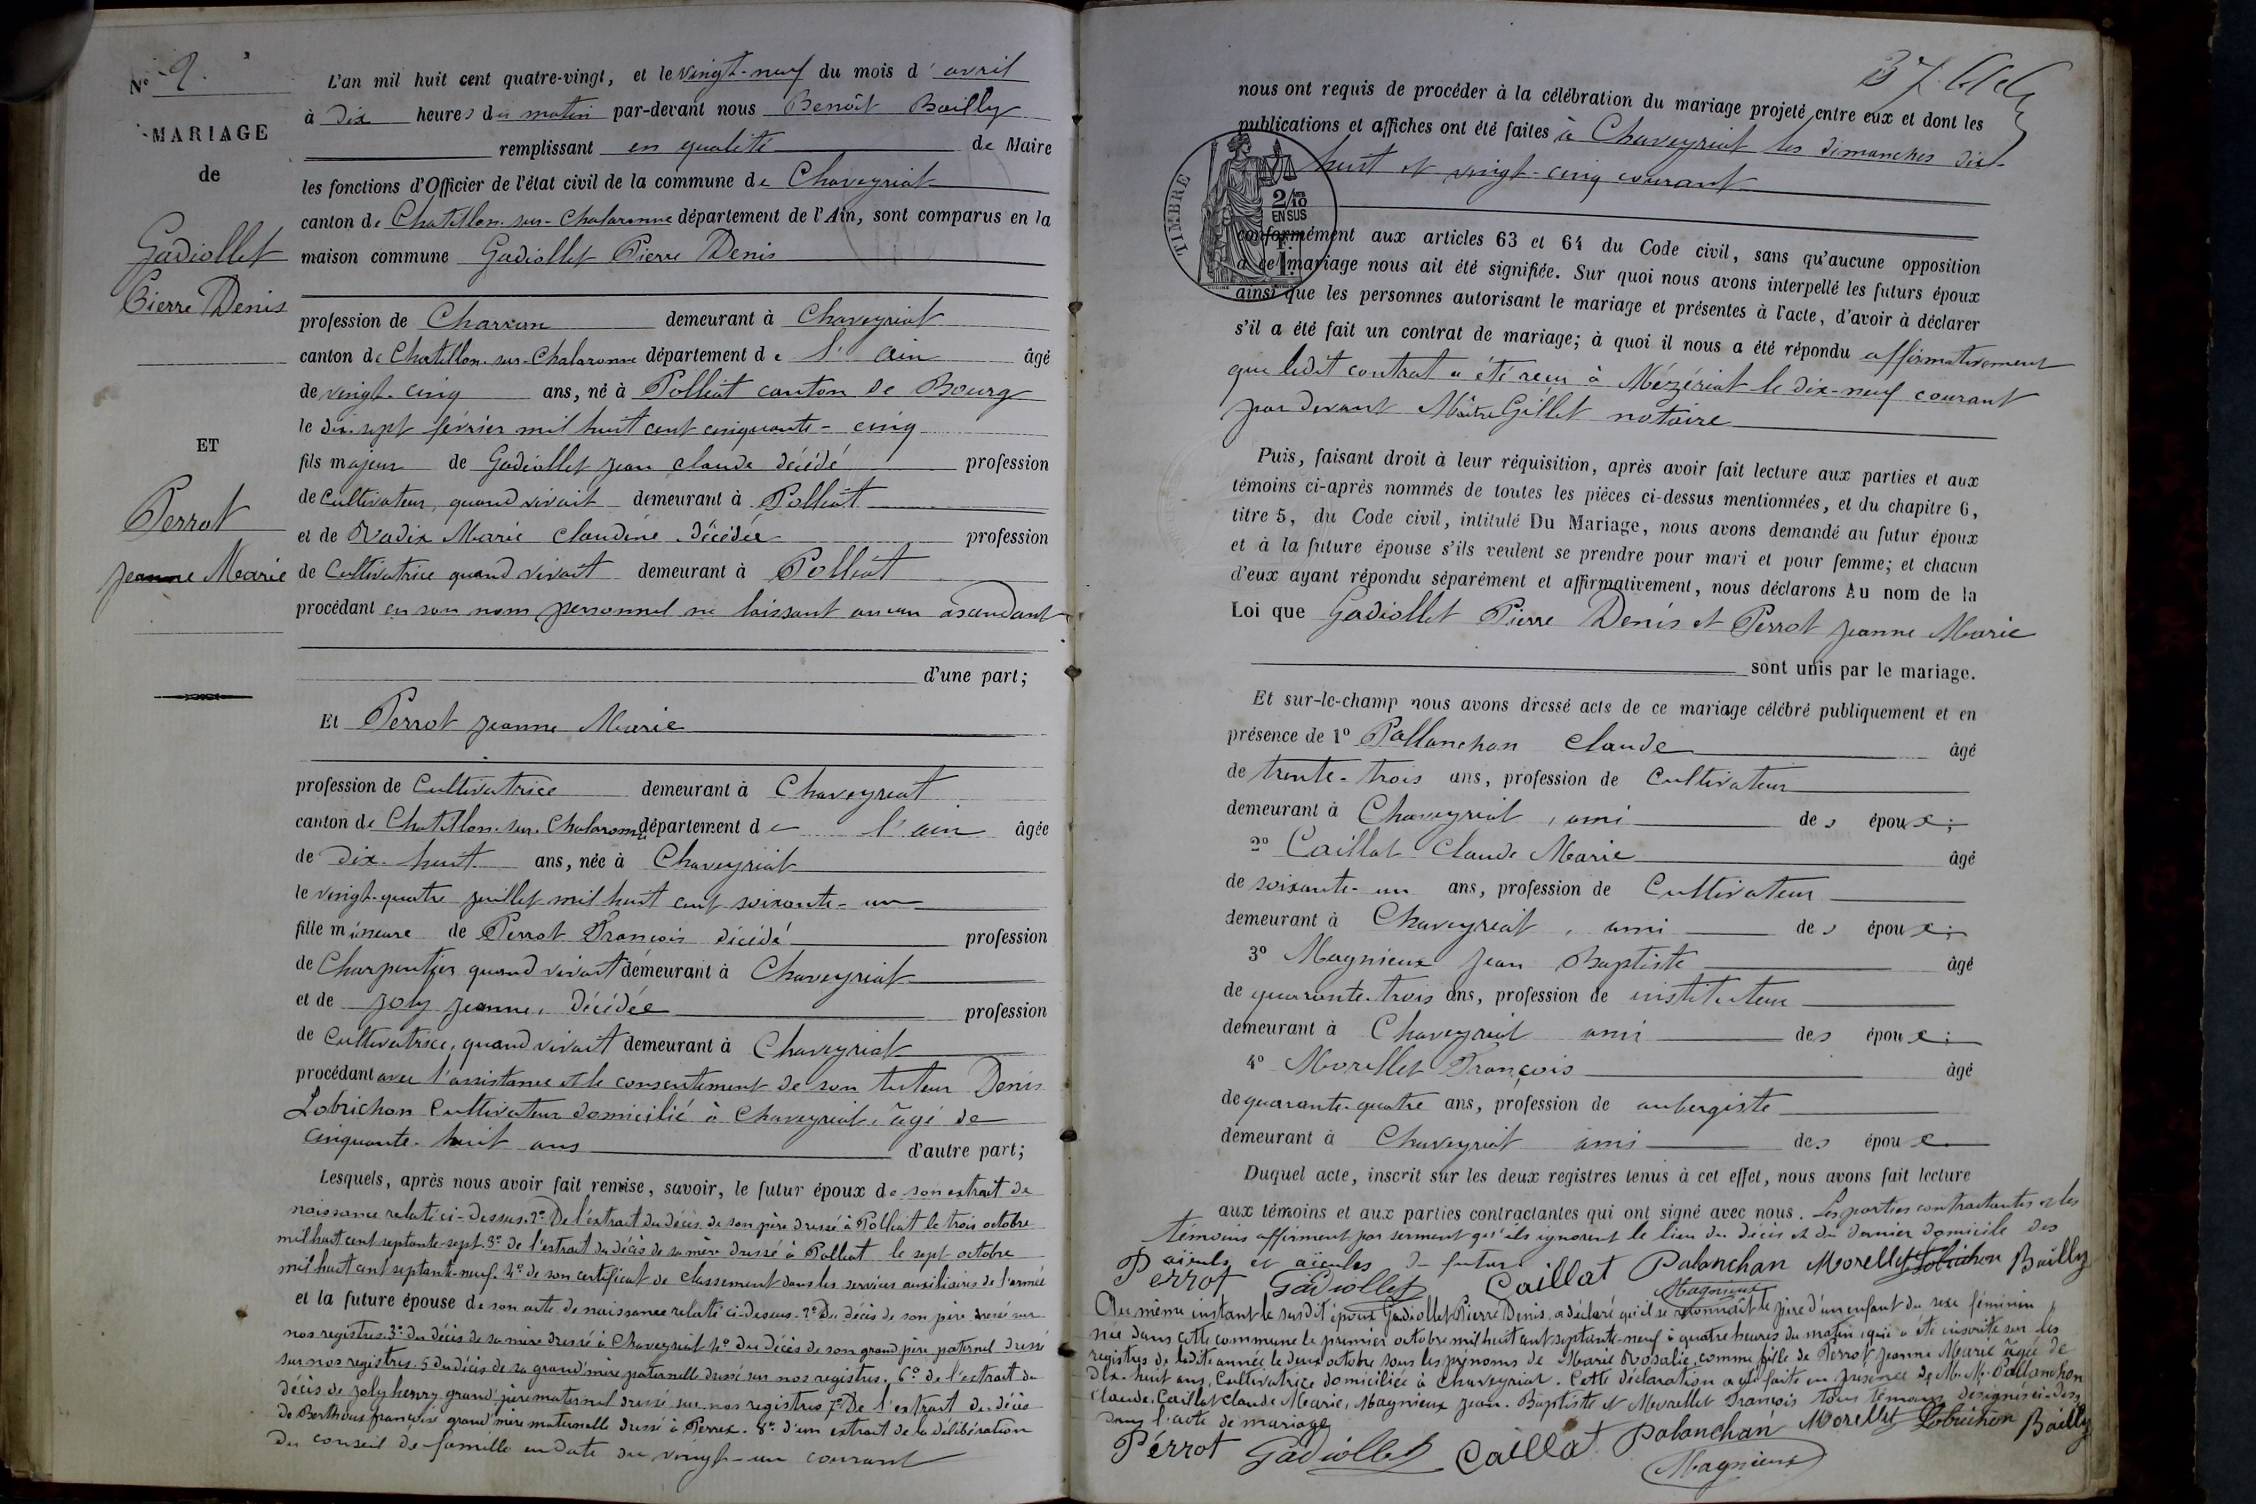 N° 9.
MARIAGE
de
Gadiollet
Pierre Denis
ET
Perrot
Jeanne Marie
L'an mil huit cent quatre-vingt, et le vingt-neuf du mois d'avril
à dix heures du matin par-devant nous Benoît Bailly
remplissant en qualité de Maire
les fonctions d'Officier de l'état civil de la commune de Chaveyriat
canton de Chatillon-sur-Chalaronne département de l'Ain, sont comparus en la
maison commune Gadiollet Pierre Denis
profession de Charron demeurant à Chaveyriat
canton de Chatillon-sur-Chalaronne département de l'ain âgé
de vingt-cinq ans, né à Polliat canton de Bourg
le dix-sept février mil huit cent cinquante-cinq
fils majeur de Gadiollet Jean Claude décédé profession
de Cultivateur, quand vivait demeurant à Polliat
et de Vadix Marie Claudine décédée profession
de Cultivatrice quand vivait demeurant à Polliat
procédant en son nom personnel ne laissant aucun ascendant
d'une part;
Et Perrot Jeanne Marie
profession de Cultivatrice demeurant à Chaveyriat
canton de Chatillon-sur-Chalaronne département de l'ain âgée
de dix-huit ans, née à Chaveyriat
le vingt-quatre juillet mil huit cent soixante-un
fille mineure de Perrot François décédé profession
de Charpentier quand vivait demeurant à Chaveyriat
et de Joly Jeanne, décédée profession
de Cultivatrice, quand vivait demeurant à Chaveyriat
procédant avec l'assistance et le consentement de son tuteur Denis
Lobrichon Cultivateur domicilié à Chaveyriat, âgé de
cinquante-huit ans d'autre part;
Lesquels, après nous avoir fait remise, savoir, le futur époux de son extrait de
naissance relaté ci-dessus. 2° De l'extrait du décès de son père dressé à Polliat le trois octobre
mil huit cent septante-sept. 3° de l'extrait du décès de sa mère dressé à Polliat le sept octobre
mil huit cent septante-neuf. 4° de son certificat de classement dans les services auxiliaires de l'armée
et la future épouse de son acte de naissance relaté ci-dessus. 2° Du décès de son père dressé sur
nos registres. 3° du décès de sa mère dressé à Chaveyriat 4° du décès de son grand père paternel dressé
sur nos registres. 5 du décès de sa grand'mère paternelle dressé sur nos registres. 6° de l'extrait du
décès de Joly henry grand'père maternel dressé sur nos registres 7° De l'extrait du décès
de Berthoux françoise grand'mère maternelle dressé à Perrex. 8° d'un extrait de la délibération
du conseil de famille en date du vingt-un courant
nous ont requis de procéder à la célébration du mariage projeté entre eux et dont les
publications et affiches ont été faites à Chaveyriat les dimanches dix-
huit et vingt-cinq courant
TIMBRE
2/10 EN SUS
conformément aux articles 63 et 64 du Code civil, sans qu'aucune opposition
à ce mariage nous ait été signifiée. Sur quoi nous avons interpellé les futurs époux
ainsi que les personnes autorisant le mariage et présentes à l'acte, d'avoir à déclarer
s'il a été fait un contrat de mariage; à quoi il nous a été répondu affirmativement
que ledit contrat a été reçu à Mézériat le dix-neuf courant
par devant Maître Gillet notaire
Puis, faisant droit à leur réquisition, après avoir fait lecture aux parties et aux
témoins ci-après nommés de toutes les pièces ci-dessus mentionnées, et du chapitre 6,
titre 5, du Code civil, intitulé Du Mariage, nous avons demandé au futur époux
et à la future épouse s'ils veulent se prendre pour mari et pour femme; et chacun
d'eux ayant répondu séparément et affirmativement, nous déclarons Au nom de la
Loi que Gadiollet Pierre Denis et Perrot Jeanne Marie
sont unis par le mariage.
Et sur-le-champ nous avons dressé acte de ce mariage célébré publiquement et en
présence de 1° Pallanchon Claude âgé
de trente-trois ans, profession de Cultivateur
demeurant à Chaveyriat, ami des époux;
2° Caillat Claude Marie âgé
de soixante-un ans, profession de Cultivateur
demeurant à Chaveyriat, ami des époux;
3° Magnieux Jean Baptiste âgé
de quarante-trois ans, profession de instituteur
demeurant à Chaveyriat ami des époux;
4° Morellet François âgé
de quarante-quatre ans, profession de aubergiste
demeurant à Chaveyriat ami des époux
Duquel acte, inscrit sur les deux registres tenus à cet effet, nous avons fait lecture
aux témoins et aux parties contractantes qui ont signé avec nous. Les parties contractantes et les
témoins affirment par serment qu'ils ignorent le lieu du décès et du dernier domicile des
aïeuls et aïeules du futur.
Perrot Gadiollet Caillat Palanchan Morellet Lobrichon Bailly
Magnieux
Au même instant le susdit époux Gadiollet Pierre Denis, a déclaré qu'il se reconnaît le père d'un enfant du sexe féminin
née dans cette commune le premier octobre mil huit cent septante-neuf à quatre heures du matin, qui a été inscrite sur les
registres de ladite année le deux octobre sous les prénoms de Marie Rosalie, comme fille de Perrot Jeanne Marie âgée de
dix-huit ans, Cultivatrice domiciliée à Chaveyriat. Cette déclaration a été faite en présence de M.M. Pallanchon
Claude, Caillat Claude Marie, Magnieux Jean-Baptiste et Morellet François tous témoins désignés ci-dess
dans l'acte de mariage
Pérrot Gadiollet Caillat Palanchan Morellet Lobrichon Bailly
Magnieux